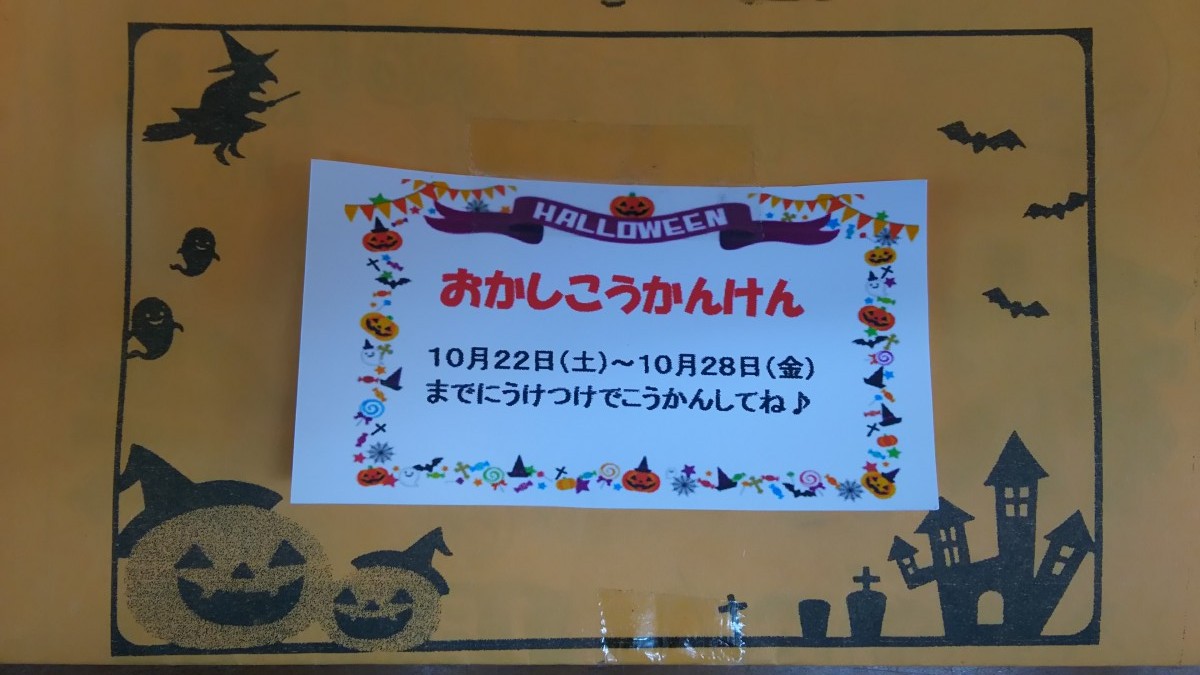 HALLOWEEN
おかしこうかんけん
10月22日(土)～10月28日(金)
までにうけつけでこうかんしてね♪